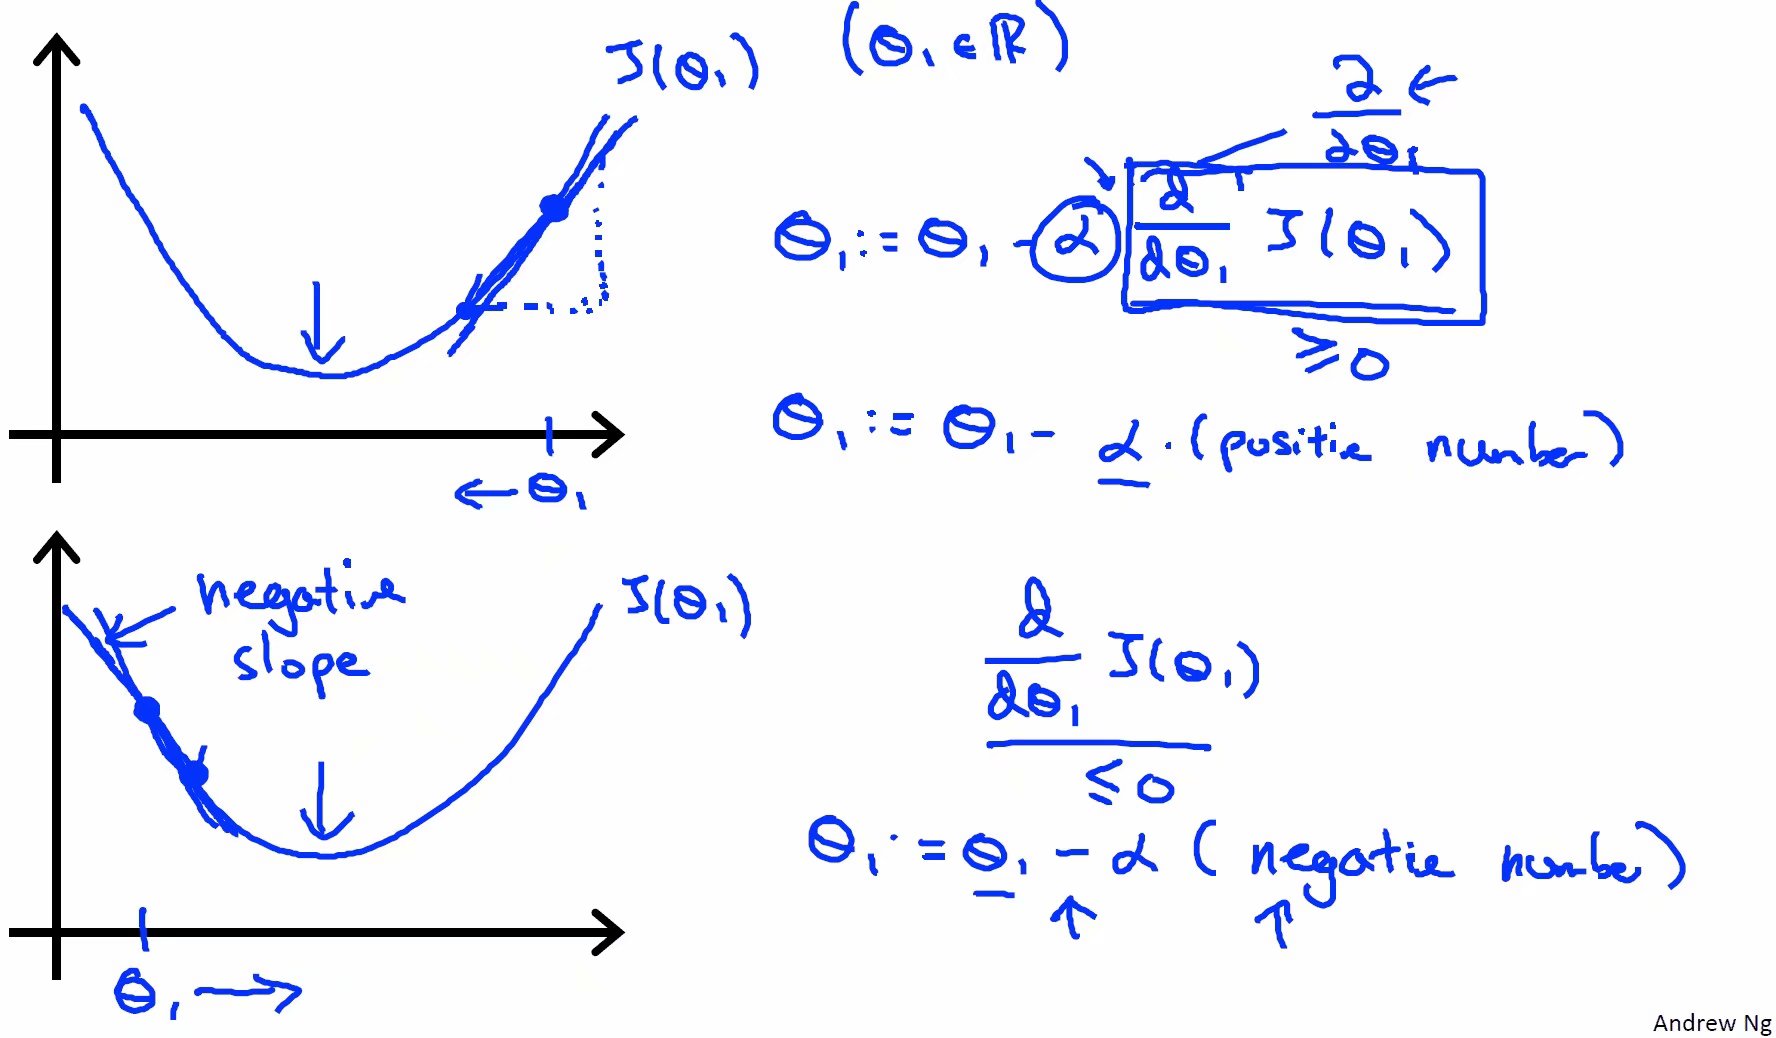 J(θ₁) (θ₁ ∈ ℝ)
∂/∂θ₁
θ₁ := θ₁ - α d/dθ₁ J(θ₁)
≥ 0
θ₁ := θ₁ - α · (positie number)
← θ₁
negative slope
J(θ₁)
d/dθ₁ J(θ₁)
≤ 0
θ₁ := θ₁ - α (negatie number)
θ₁ →
Andrew Ng